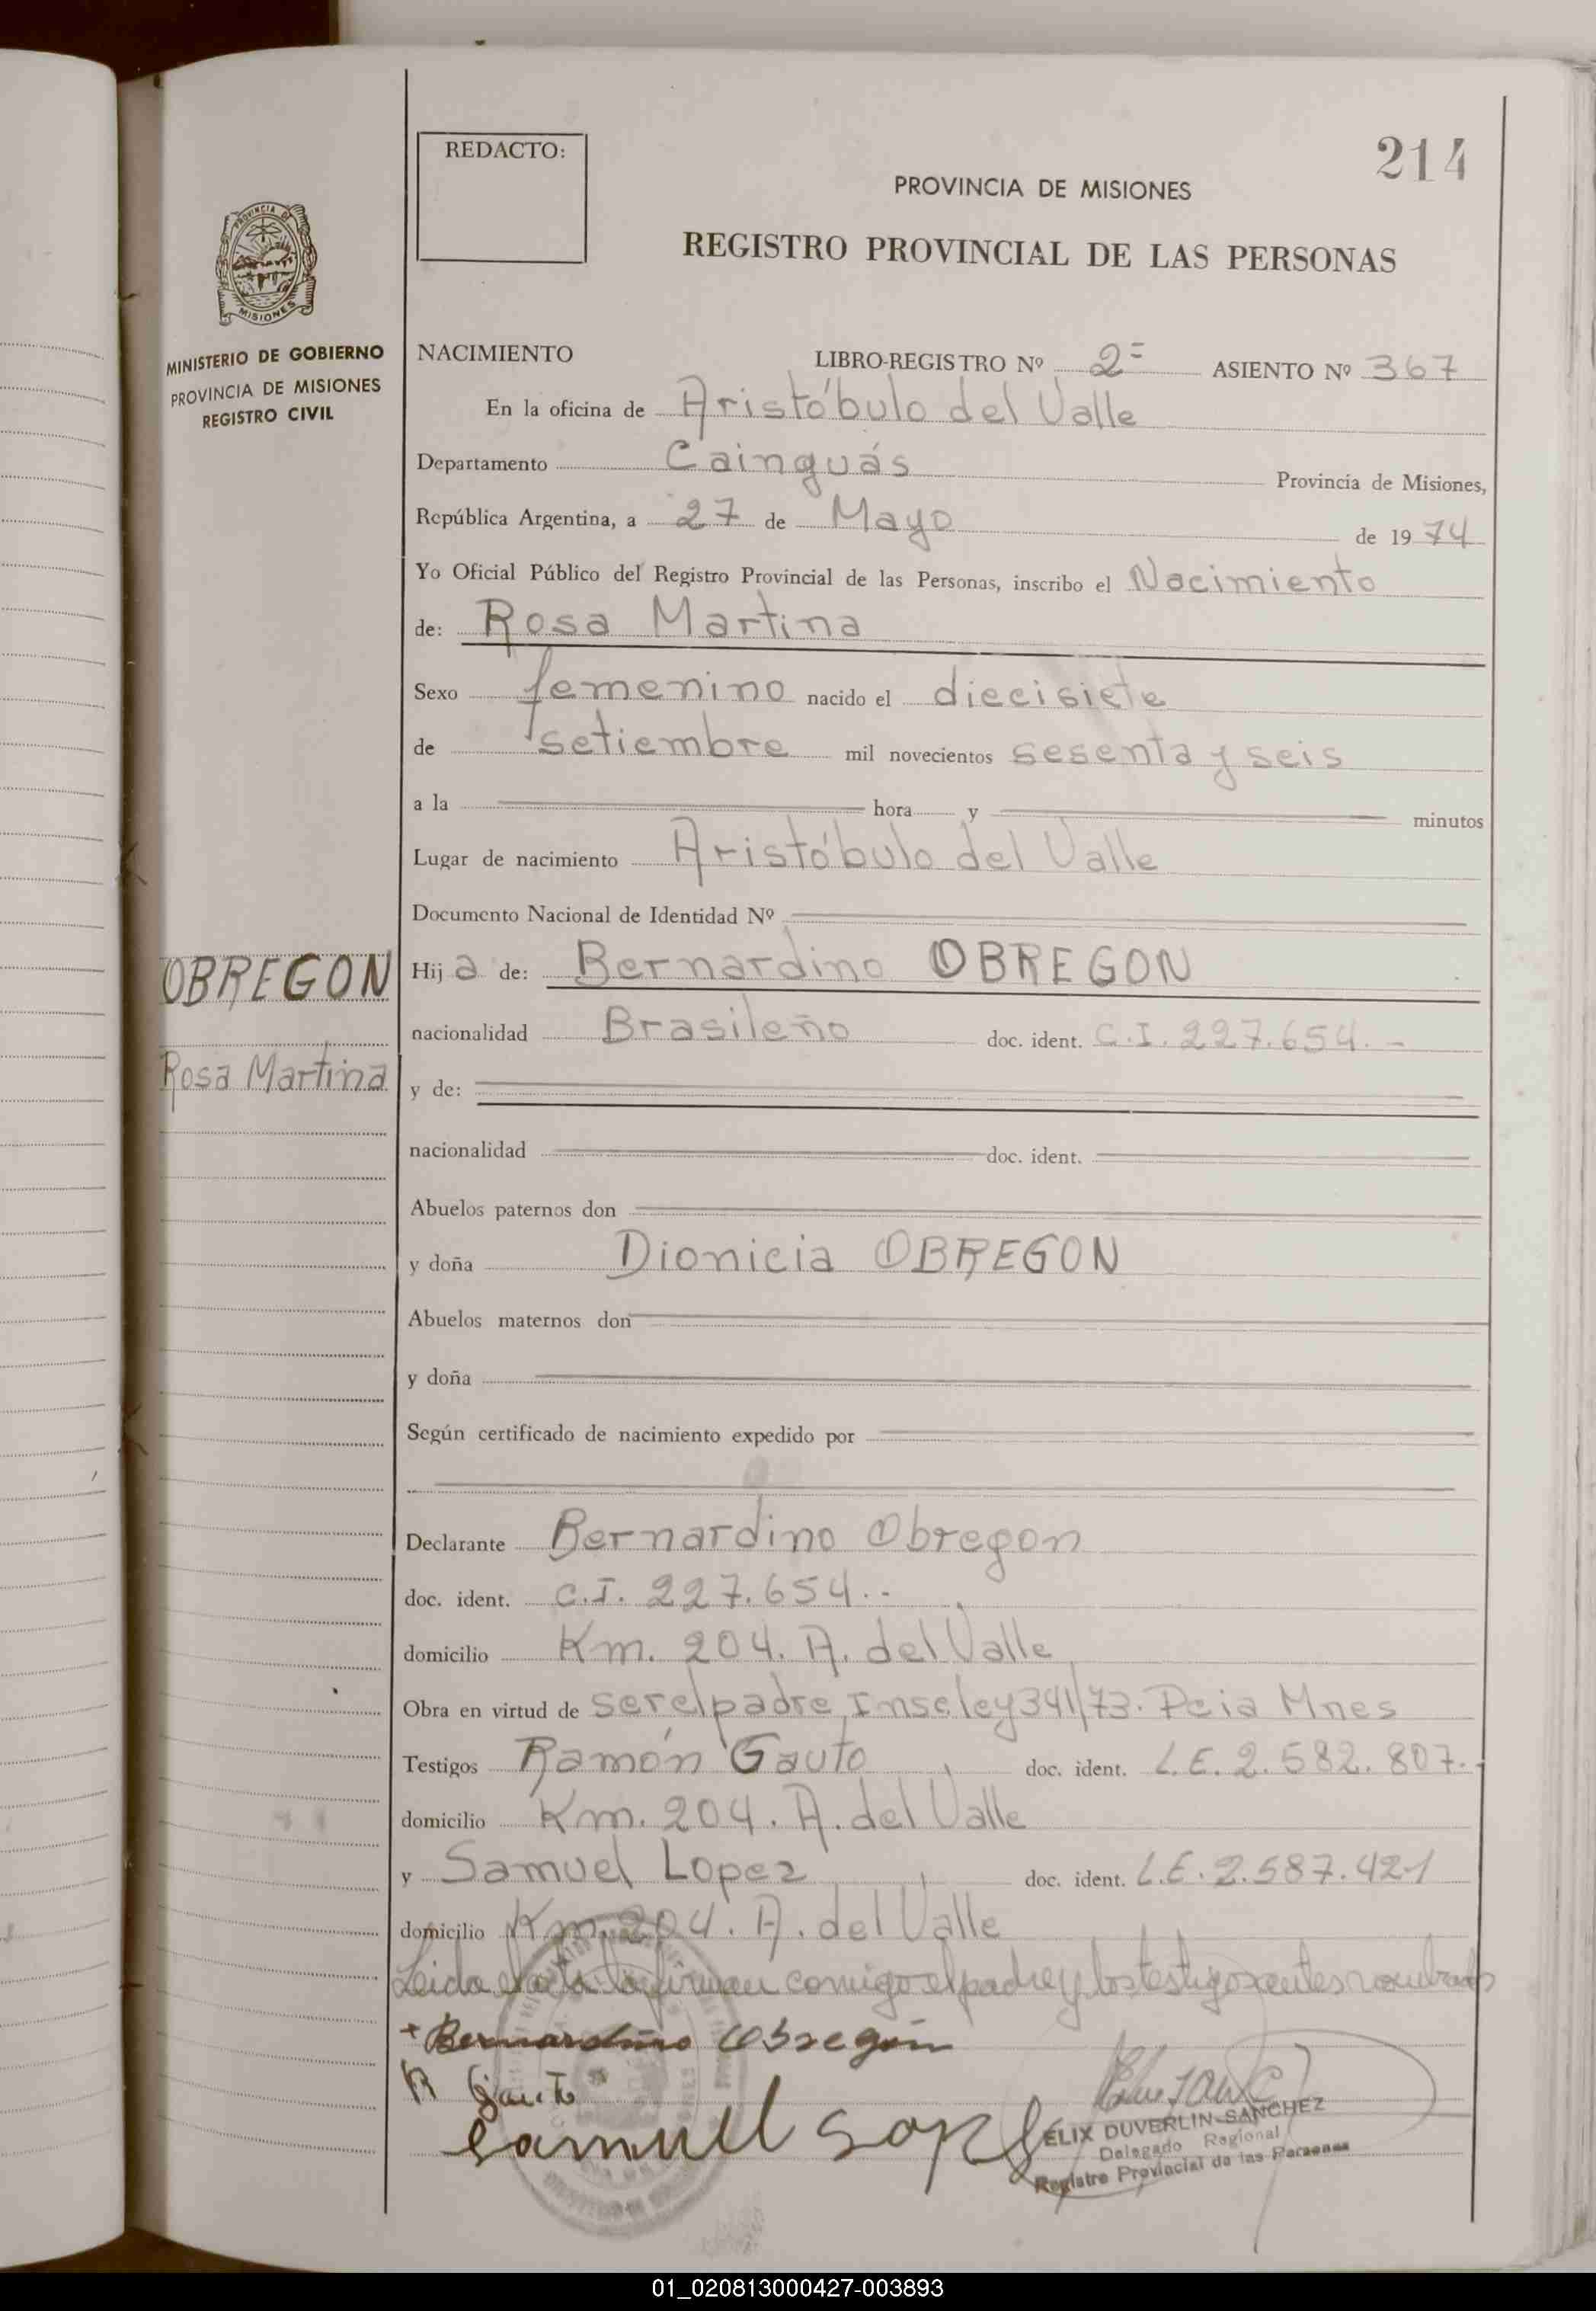 214
REDACTO:
PROVINCIA DE MISIONES
REGISTRO PROVINCIAL DE LAS PERSONAS
PROVINCIA DE
MISIONES
MINISTERIO DE GOBIERNO
PROVINCIA DE MISIONES
REGISTRO CIVIL
NACIMIENTO LIBRO-REGISTRO Nº 2º ASIENTO Nº 367
En la oficina de Aristóbulo del Valle
Departamento Cainguás Provincia de Misiones,
República Argentina, a 27 de Mayo de 1974
Yo Oficial Público del Registro Provincial de las Personas, inscribo el Nacimiento
de: Rosa Martina
Sexo femenino nacido el diecisiete
de setiembre mil novecientos sesenta y seis
a la hora y minutos
Lugar de nacimiento Aristóbulo del Valle
Documento Nacional de Identidad Nº
OBREGON
Rosa Martina
Hija de: Bernardino OBREGON
nacionalidad Brasileño doc. ident. C.I. 227.654.-
y de:
nacionalidad doc. ident.
Abuelos paternos don
y doña Dionicia OBREGON
Abuelos maternos don
y doña
Según certificado de nacimiento expedido por
Declarante Bernardino Obregon
doc. ident. C.I. 227.654.-
domicilio Km. 204. A. del Valle
Obra en virtud de ser el padre, Insc. ley 341/73. Pcia Mnes
Testigos Ramón Gauto, doc. ident. L.E. 2.582.807.-
domicilio Km. 204. A. del Valle
y Samuel Lopez, doc. ident. L.E. 2.587.421
domicilio Km. 204. A. del Valle
Leida el acta la firman comigo el padre y los testigos antes nombrados
+ Bernardino Obregón
R Gauto
Samuel Lopez
FELIX DUVERLIN SANCHEZ
Delegado Regional
Registro Provincial de las Personas
01_020813000427-003893